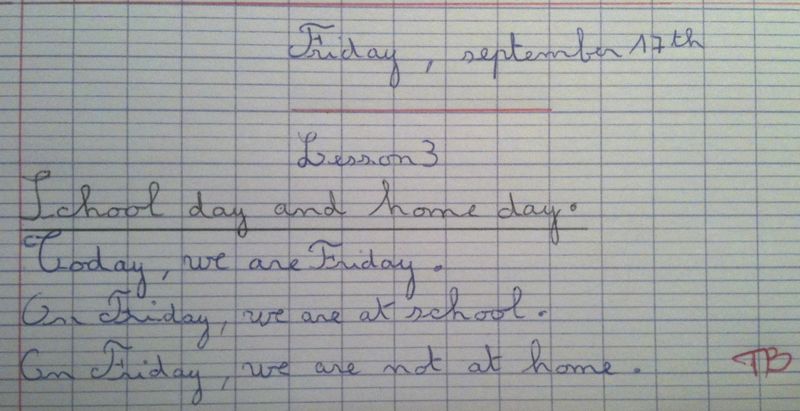 Friday, september 17th
Lesson 3
School day and home day.
Today, we are Friday.
On Friday, we are at school.
On Friday, we are not at home.
TB